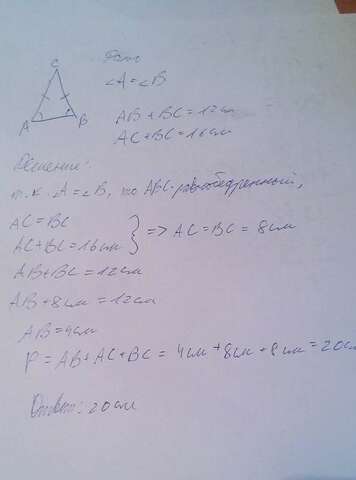 C
A
B
Дано
∠A=∠B
AB+BC=12см
AC+BC=16см
Решение:
т.к. ∠A=∠B, то ABC-равнобедренный,
AC=BC
AC+BC=16см } => AC=BC=8см
AB+BC=12см
AB+8см=12см
AB=4см
P=AB+AC+BC=4см+8см+8см=20см
Ответ: 20см